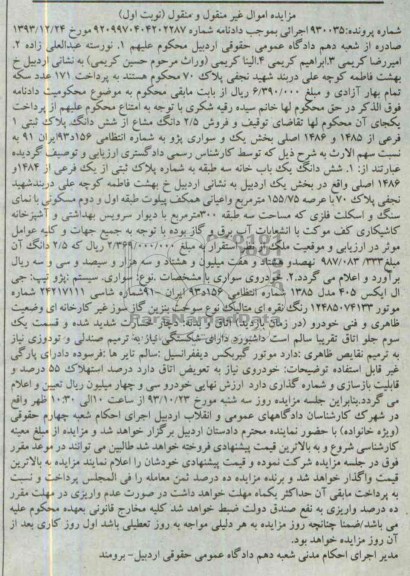 مزایده اموال غیر منقول و منقول (نوبت اول)
شماره پرونده:۹۳۰۰۳۵ اجرائی بموجب دادنامه شماره ۹۲۰۹۹۷۰۴۰۴۲۰۲۲۸۷ مورخ ۱۳۹۳/۱۲/۲۴
صادره از شعبه دهم دادگاه عمومی حقوقی اردبیل محکوم علیهم ۱. نورسته عبدالعلی زاده ۲.
امیررضا کریمی ۳.ابراهیم کریمی ۴.الینا کریمی (وراث مرحوم حسین کریمی) به نشانی اردبیل خ
بهشت فاطمه کوچه علی دربند شهید نجفی پلاک ۷۰ محکوم هستند به پرداخت ۱۷۱ عدد سکه
تمام بهار آزادی و مبلغ ۶/۳۹۰/۰۰۰ ریال از بابت مابقی محکوم به موضوع محکومیت دادنامه
فوق الذکر در حق محکوم لها خانم سیده رقیه شکری با توجه به امتناع محکوم علیهم از پرداخت
یکجای آن محکوم لها تقاضای توقیف و فروش ۲/۵ دانگ مشاع از شش دانگ پلاک ثبتی ۱
فرعی از ۱۴۸۵ و ۱۴۸۶ اصلی بخش یک و سواری پژو به شماره انتظامی ۱۵۶د۹۳ایران ۹۱ به
نسبت سهم الارث به شرح ذیل که توسط کارشناس رسمی دادگستری ارزیابی و توصیف گردیده
عبارتند از: ۱. شش دانگ یک باب خانه سه طبقه به شماره پلاک ثبتی از یک فرعی از ۱۴۸۴و
۱۴۸۶ اصلی واقع در بخش یک اردبیل به نشانی اردبیل خ بهشت فاطمه کوچه علی دربندشهید
نجفی پلاک ۷۰ با عرصه ۱۵۵/۷۵ مترمربع واعیانی همکف پیلوت طبقه اول و دوم مسکونی با نمای
سنگ و اسکلت فلزی که مساحت سه طبقه ۳۰۰مترمربع با دیوار سرویس بهداشتی و آشپزخانه
کاشیکاری کف موکت با انشعابات آب برق و گاز بوده با توجه به جمیع جهات و کلیه عوامل
موثر در ارزیابی و موقعیت ملک و محل استقرار به مبلغ ۲/۳۶۹/۰۰۰/۰۰۰ ریال که ۲/۵ دانگ آن
مبلغ ۹۸۷/۰۸۳/۳۳۳ نهصدو هشتاد و هفت میلیون و هشتاد و سه هزار و سیصد و سی و سه ریال
برآورد و اعلام می گردد.۲. خودروی سواری با مشخصات .نوع: سواری. سیستم :پژو تیپ: جی
ال ایکس ۴۰۵ مدل ۱۳۸۵ شماره انتظامی ۱۵۶د۹۳ ایران ۹۱-شماره شاسی ۲۴۲۱۷۱۱۱ شماره
موتور ۱۲۴۸۵۰۷۴۱۳۳ رنگ نقره ای متالیک نوع سوخت بنزین گاز سوز غیر کارخانه ای وضعیت
ظاهری و فنی خودرو (در زمان بازدید) اتاق و بدنه دچار خسارت شدید شده و قسمت یک
سوم جلو اتاق تقریبا سالم است داشبورد دارای شکستگی نیاز به ترمیم صندلی و تودوزی نیاز
به ترمیم نقایص ظاهری :دارد موتور گیربکس دیففرانسیل :سالم تایر ها :فرسوده دادرای پارگی
غیر قابل استفاده توضیحات: خودروی نیاز به تعویض اتاق دارد درصد استهلاک ۵۵ درصد و
قابلیت بازسازی و شماره گذاری دارد ارزش نهایی خودرو سی و چهار میلیون ریال تعیین و اعلام
می گردد.بنابراین جلسه مزایده روز سه شنبه مورخ ۹۳/۱۰/۲۳ از ساعت ۱۰الی ۱۰:۳۰ ظهر واقع
در شهرک کارشناسان دادگاههای عمومی و انقلاب اردبیل اجرای احکام شعبه چهارم حقوقی
(ویژه خانواده) با حضور نماینده محترم دادستان اردبیل برگزار خواهد شد و مزایده از مبلغ معینه
کارشناسی شروع و به بالاترین قیمت پیشنهادی فروخته خواهد شدطالبین می توانند در موعد مقرر
فوق در جلسه مزایده شرکت نموده و قیمت پیشنهادی خودشان را اعلام نمایند مزایده به بالاترین
قیمت واگذار خواهد شد و برنده مزایده ده درصد ثمن معامله را فی المجلس پرداخت و نسبت
به پرداخت مابقی آن حداکثر یکماه مهلت خواهد داشت در صورت عدم واریزی در مهلت مقرر
ده درصد واریزی به نفع صندوق دولت ضبط خواهد شد کلیه مخارج قانونی بعهده محکوم علیه
می باشد/ضمنا چنانچه روز مزایده به هر دلیلی مواجه به روز تعطیلی باشد اول روز کاری بعد از
آن روز مزایده خواهد بود.
مدیر اجرای احکام مدنی شعبه دهم دادگاه عمومی حقوقی اردبیل- برومند